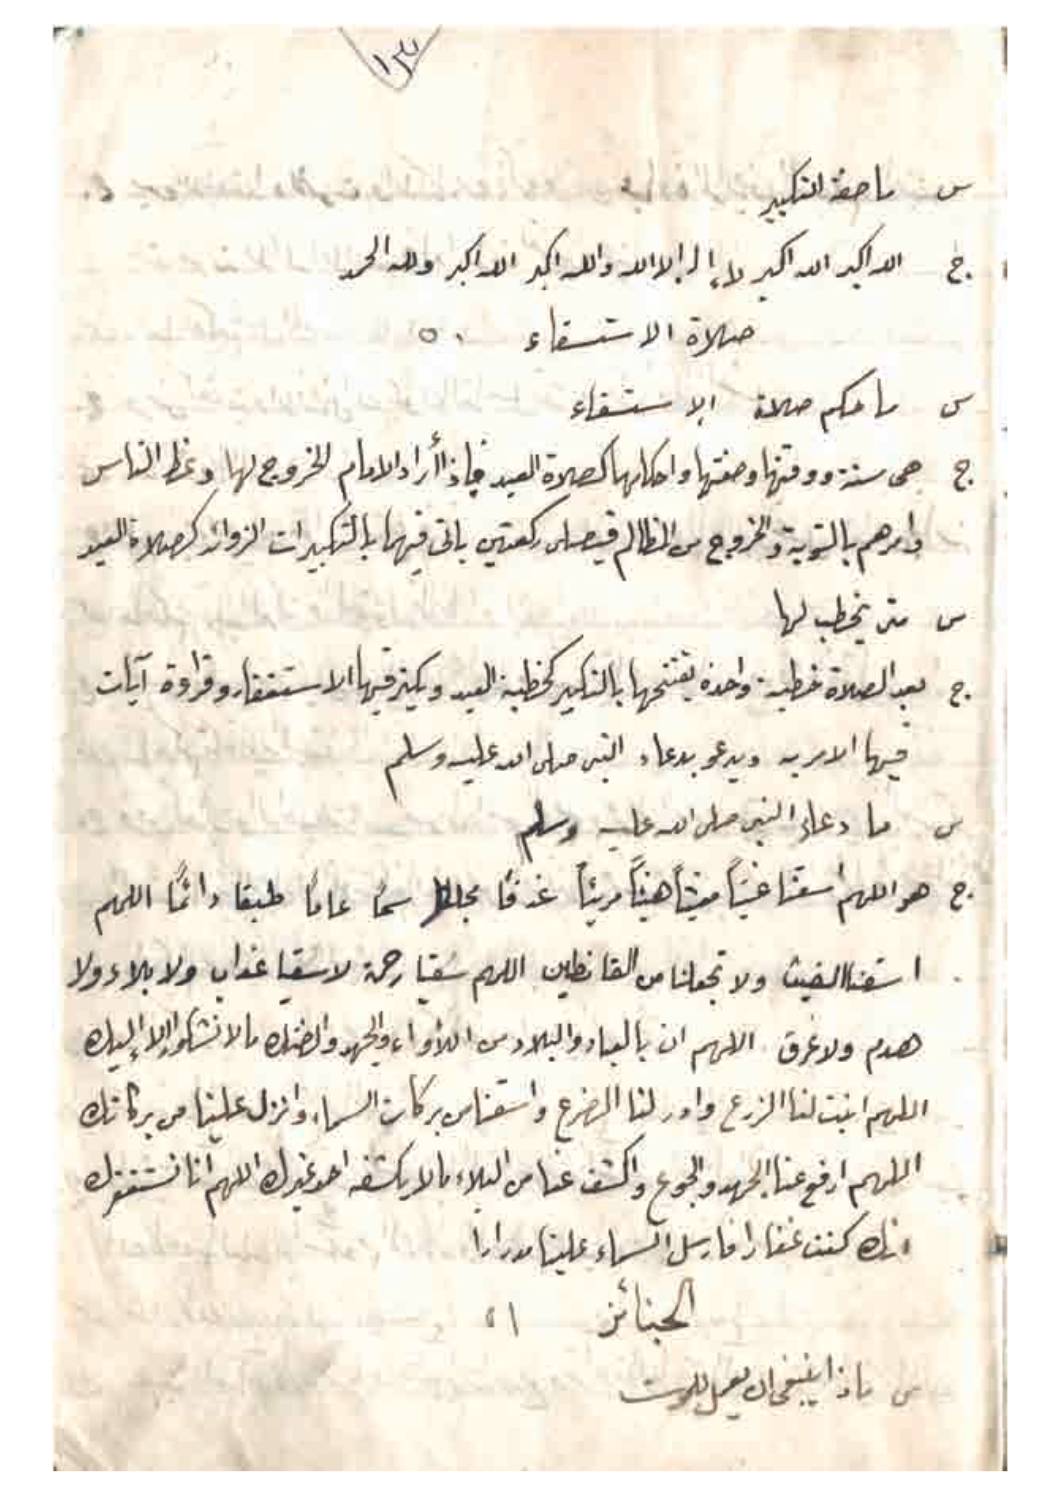 ١٣
س ما صفة التكبير
ج الله اكبر الله اكبر لا إله إلا الله والله اكبر الله اكبر ولله الحمد
صلاة الاستسقاء ٥٠
س ما حكم صلاة الاستسقاء
ج هى سنة ووقتها وصفتها واحكامها كصلاة العيد فإذا أراد الامام الخروج لها وعظ الناس
وامرهم بالتوبة والخروج من المظالم فيصلى ركعتين ياتى فيها بالتكبيرات الزوائد كصلاة العيد
س متى يخطب لها
ج بعد الصلاة خطبة واحدة يفتتحها بالتكبير كخطبة العيد ويكثر فيها الاستغفار وقراءة آيات
فيها الامر به ويدعو بدعاء النبى صلى الله عليه وسلم
س ما دعاء النبى صلى الله عليه وسلم
ج هو اللهم اسقنا غيثاً مغيثاً هنيئاً مريئاً غدقاً مجللا سحاً عاماً طبقا دائماً اللهم
اسقنا الغيث ولا تجعلنا من القانطين اللهم سقيا رحمة لا سقيا عذاب ولا بلاء ولا
هدم ولا غرق اللهم ان بالعباد والبلاد من اللأواء والجهد والضنك ما لا نشكوا إلا إليك
اللهم انبت لنا الزرع وادر لنا الضرع واسقنا من بركات السماء وانزل علينا من بركاتك
اللهم ارفع عنا الجهد والجوع واكشف عنا من البلاء ما لا يكشفه احد غيرك اللهم انا نستغفرك
انك كنت غفارا فارسل السماء علينا مدرارا
الجنائز ٥١
س ماذا ينبغى ان يعمل للموت